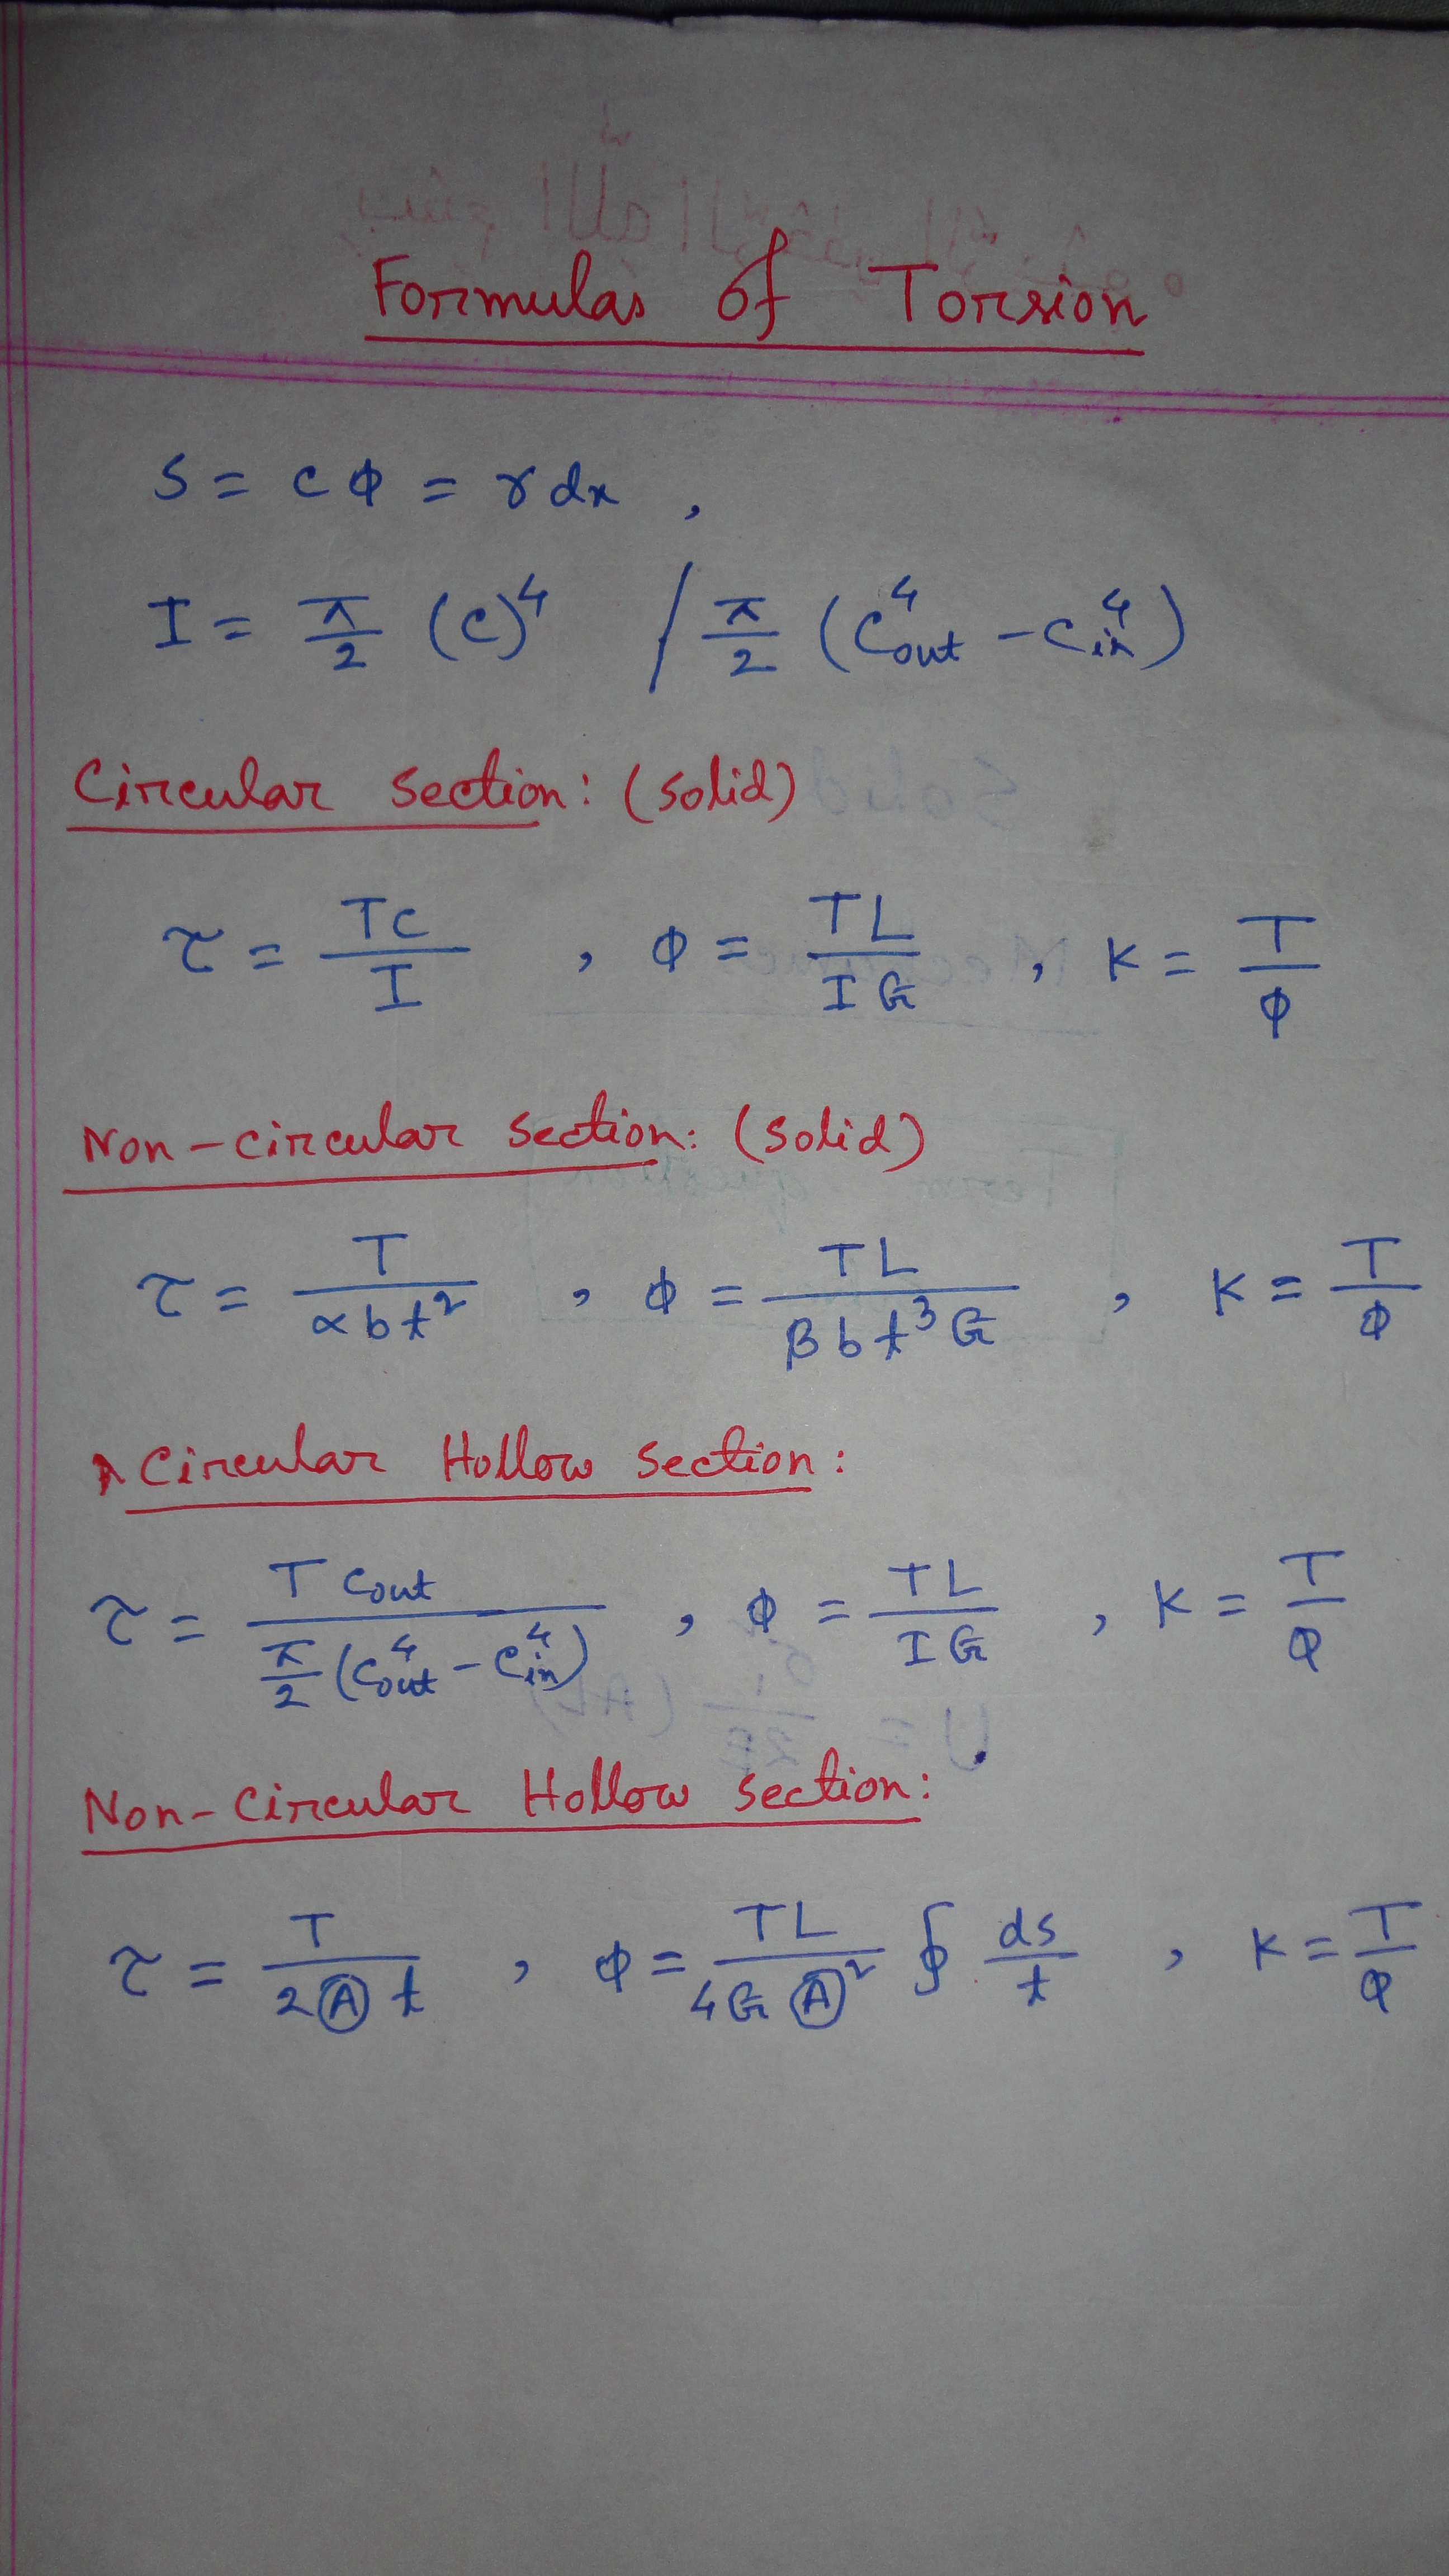 Formulas of Torsion
S = cΦ = γdx ,
I = π/2 (c)⁴ / π/2 (C⁴out - C⁴in)
Circular section: (solid)
τ = TC/I , Φ = TL/IG , K = T/Φ
Non-circular section: (solid)
τ = T/αbt² , Φ = TL/βbt³G , K = T/Φ
Circular Hollow section:
τ = T Cout / π/2 (C⁴out - C⁴in) , Φ = TL/IG , K = T/Φ
Non-Circular Hollow section:
τ = T/2Ⓐt , Φ = TL/4GⒶ² ∮ ds/t , K = T/Φ